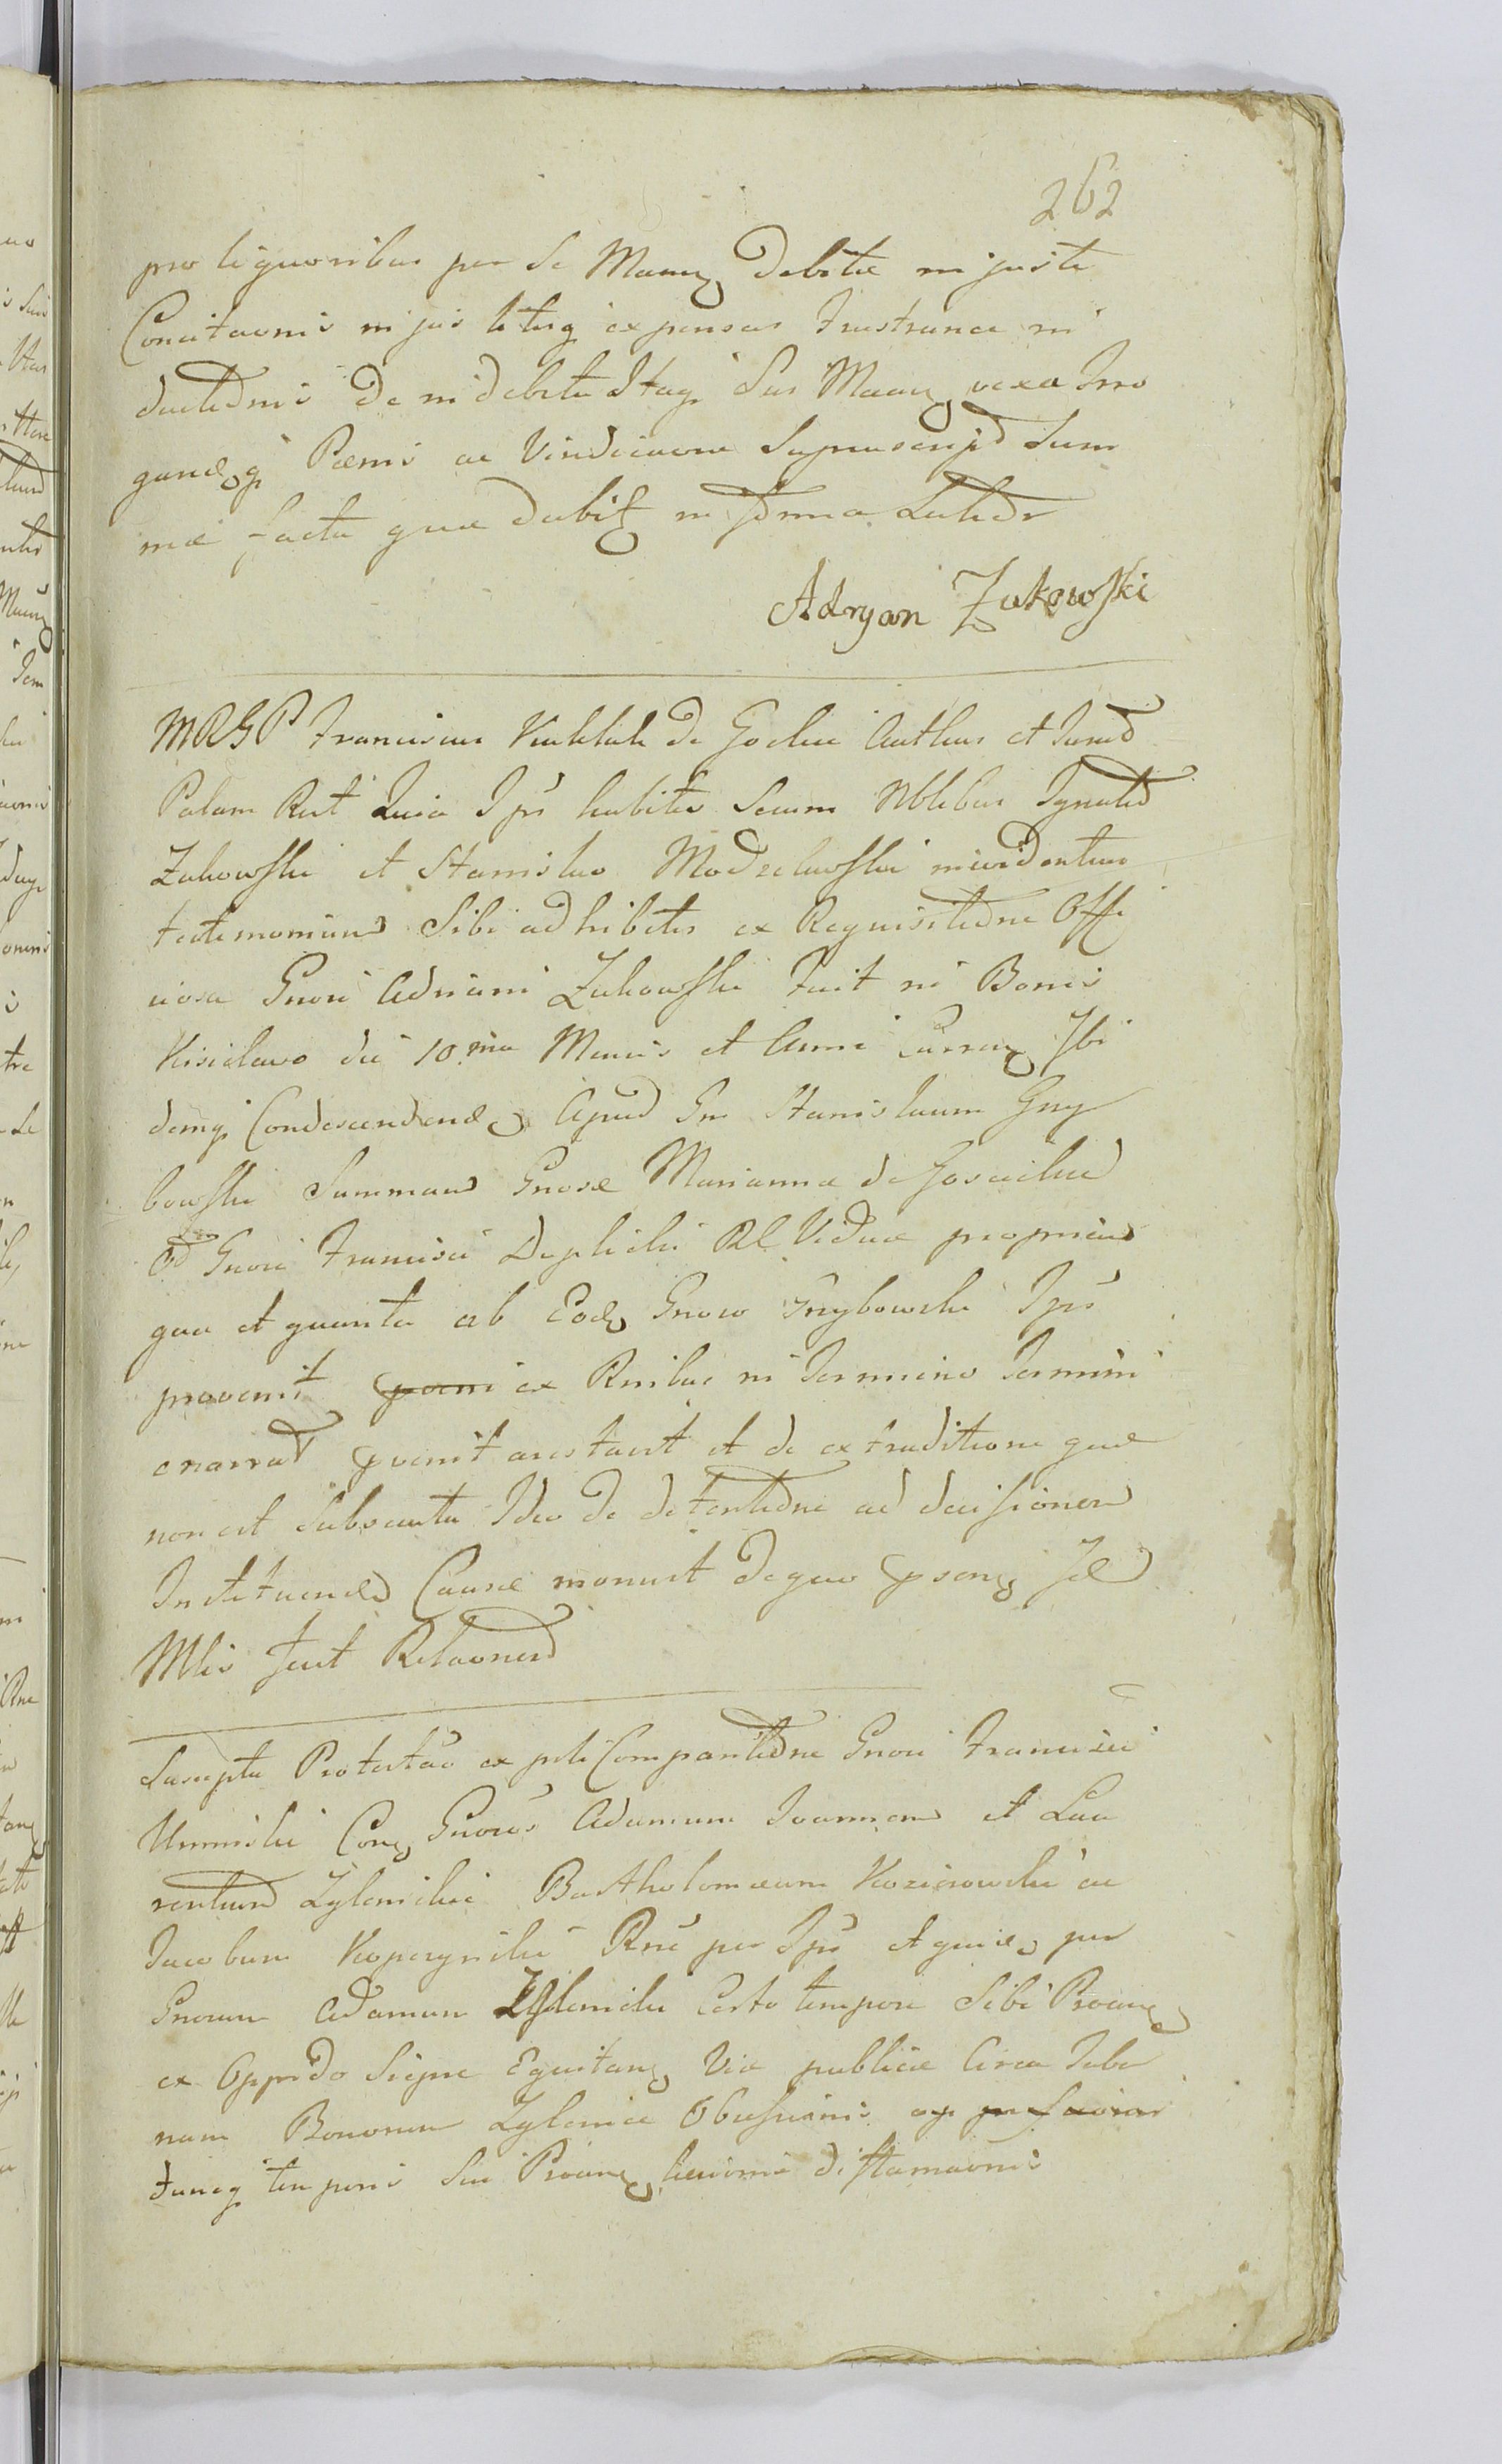 262
pro liquoribus per se Manę debitæ injuste
Concitaonis in jus literq expensas frustranea in
ductēnis de indebita Itaq. Sui Manę vexa Irro
gandęq Pænis ac Vindicaone Suprascript Sum
mæ facta quæ dabiţ in forma Latiōr
Adryan Żukowski
MRGP Franciscus Kuklik de Goclue Authus et Jurad
Palam Rect Quia Ips habitis Secum Nblibus Ignatio
Zukowski et Stanislao Modzelewski in evidentius
testimonium Sibi adhibitis ex Requisitiōne Offi
ciosa Gnosi Adriani Zukowski Fuit in Bonis
Kisielewo die 10 ma Mensis et Anni currenę Ibi
demq Condescendendę Apud Gn Stanislaum Grzy
bowski Summam Gnosæ Marianna de
Gnosi Francisci Deplicki Rl Viduæ propriam
qua et quanta ab Eodę Gnoso Grzybowski Ips
provenit ex Rnibus in Termino Termini
enarrat pvenit arestavit et de extraditione quæ
non est Subsecuta Ideo de detentiōne ad decisionem
Instituendæ Causæ monuit de quo psenę
Mlis fecit Relaonem
Suscepta Protestao ex psli Compariōne Gnosi Francisci
Uminski Conę Gnosos Adamum Joannem et Lau
rentium Zylinskie Bartholomæum Kozierowski ac
Jacobum Koperynski Rne per Ips et quidę per
Gnosum Adamum Zylinski Certo tempore Sibi Proanę
ex Oppido Sierpc Equitanę Via publica Circa Taber
nam Bonorum Zylenice Obusionis
tuncq temporis Sui Proanę diffamaonis